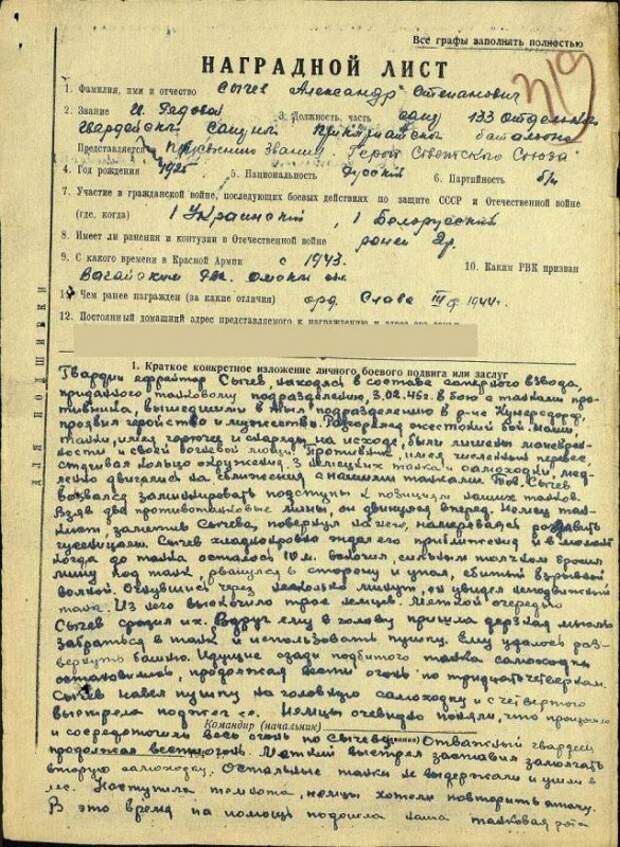 Все графы заполнять полностью
НАГРАДНОЙ ЛИСТ
319
1. Фамилия, имя и отчество Сычев Александр Степанович
2. Звание Гв. Рядовой 3. Должность, часть 133 отдельного
Гвардейск. батальона
Представляется к присвоению звания „Герой Советского Союза“
4. Год рождения 1925 5. Национальность русский 6. Партийность б/п
7. Участие в гражданской войне, последующих боевых действиях по защите СССР и Отечественной войне
(где, когда) 1 Украинский, 1 Белорусский
8. Имеет ли ранения и контузии в Отечественной войне ранен 2р.
9. С какого времени в Красной Армии с 1943. 10. Каким РВК призван
Вагайским омской обл
11. Чем ранее награжден (за какие отличия) орд. Слава III 1944г.
12. Постоянный домашний адрес представляемого к награждению и адрес его семьи
ДЛЯ ПОДШИВКИ
1. Краткое конкретное изложение личного боевого подвига или заслуг
Гвардии ефрейтор Сычев, находясь в составе саперного взвода,
приданного танковому подразделению, 3.02.45г. в бою с танками про-
тивника, вышедшими в тыл подразделению в р-не Кунерсдорф,
проявил геройство и мужество. Разгорелся ожесточенный бой. Наши
танки, имея горючее и снаряды на исходе, были лишены маневрен-
ности и своей огневой мощи. Противник, имея численный перевес,
стягивал кольцо окружения. 3 немецких танка и самоходки, мед-
ленно двигались на сближения с нашими танками. Тов. Сычев
вызвался заминировать подступы к позициям наших танков.
Взяв два противотанковые мины, он двинулся вперед. Немец тан-
кист, заметив Сычева, повернул на него, намереваясь раздавить
гусеницами. Сычев хладнокровно ждал его приближения и в момент
когда до танка осталось 10 м. вскочил, сильным толчком бросил
мину под танк, рванулся в сторону и упал, сбитый взрывной
волной. Очнувшись через несколько минут, он увидел неподвижный
танк. Из него выскочило трое немцев. Меткой очередью
Сычев сразил их. Вдруг ему в голову пришла дерзкая мысль
забраться в танк и использовать пушку. Ему удалось раз-
вернуть башню. Идущие сзади подбитого танка самоходки
остановились, продолжая вести огонь по тридцатьчетверкам.
Сычев навел пушку на головную самоходку и с четвертого
выстрела поджег ее. Немцы очевидно поняли, что произошло
Командир (начальник)
и сосредоточили весь огонь по Сычеву. Отважный гвардеец
продолжал вести огонь. Меткий выстрел заставил замолчать
вторую самоходку. Остальные танки не выдержали и ушли в
лес. Наступила темнота, немцы хотели повторить атаку.
В это время на помощь подошла наша танковая рота